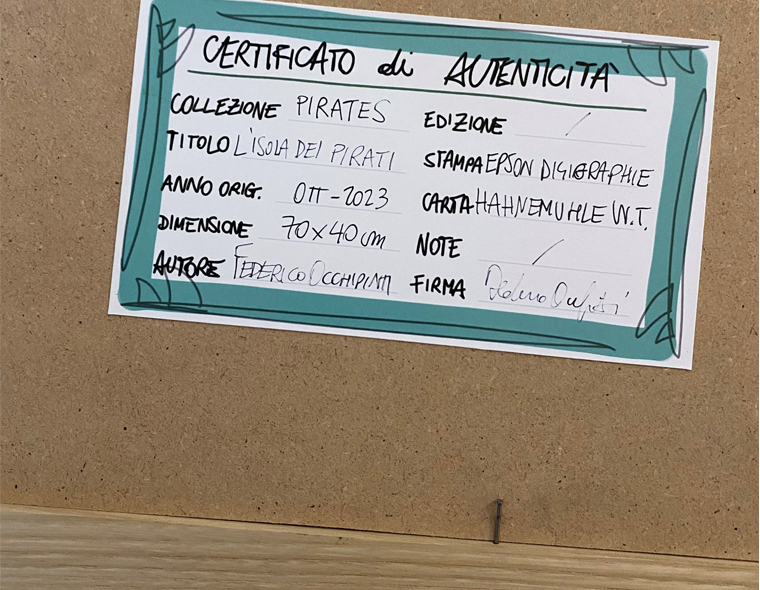 CERTIFICATO di AUTENTICITÀ
COLLEZIONE PIRATES
TITOLO L'ISOLA DEI PIRATI
ANNO ORIG. OTT-2023
DIMENSIONE 70x40 cm
AUTORE FEDERICO OCCHIPINTI
EDIZIONE /
STAMPA EPSON DIGIGRAPHIE
CARTA HAHNEMUHLE W.T.
NOTE /
FIRMA